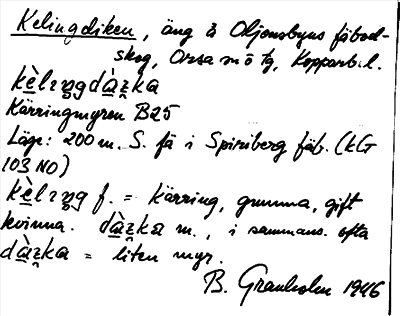 Kelingdiken, äng å Oljonsbyns fäbod-
skog, Orsa sn o tg, Kopparb. l.
kèlıŋgdàz̥ka
Kärringmyren B25
Läge: 200 m. S. fä i Spiriberg fäb. (kG
103 NO)
kèlıŋg f. = kärring, gumma, gift
kvinna. dàz̥ka m., i sammans. ofta
dàz̥ka = liten myr.
B. Granholm 1946